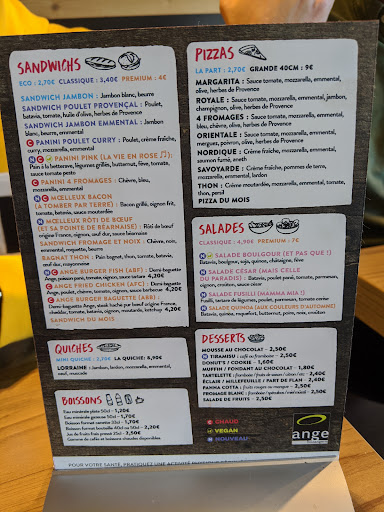 SANDWICHS
ECO : 2,70€ CLASSIQUE : 3,40€ PREMIUM : 4€
SANDWICH JAMBON : Jambon blanc, beurre
SANDWICH POULET PROVENÇAL : Poulet,
batavia, tomate, huile d'olive, herbes de Provence
SANDWICH JAMBON EMMENTAL : Jambon
blanc, beurre, emmental
C PANINI POULET CURRY : Poulet, crème fraîche,
curry, mozzarella, emmental
N C PANINI PINK (LA VIE EN ROSE) :
Pain à la betterave, légumes grillés, butternut, fève, tomate,
sauce tomate pesto
C PANINI 4 FROMAGES : Chèvre, bleu,
mozzarella, emmental
N C MOELLEUX BACON
(À TOMBER PAR TERRE) : Bacon grillé, oignon frit,
tomate, batavia, sauce moutardée
N MOELLEUX RÔTI DE BŒUF
(ET SA POINTE DE BÉARNAISE) : Rôti de bœuf
origine France, oignons, œuf dur, sauce béarnaise
SANDWICH FROMAGE ET NOIX : Chèvre, noix,
emmental, roquette, beurre
BAGNAT THON : Pain bagnat, thon, tomate, batavia,
œuf dur, mayonnaise
N C ANGE BURGER FISH (ABF) : Demi baguette
Ange, poisson pané, tomate, oignon, sauce tartare 4,20€
C ANGE FRIED CHICKEN (AFC) : Demi baguette
Ange, poulet, chèvre, tomate, oignon, sauce barbecue 4,20€
C ANGE BURGER BAGUETTE (ABB) :
Demi baguette Ange, steak haché pur bœuf origine France,
cheddar, tomate, batavia, oignon, moutarde, ketchup 4,20€
SANDWICH DU MOIS
QUICHES
MINI QUICHE : 2,70€ LA QUICHE : 8,90€
LORRAINE : Jambon, lardon, mozzarella, emmental,
œuf, muscade
BOISSONS
Eau minérale plate 50cl - 1,20€
Eau minérale gazeuse 50cl - 1,70€
Boisson format canette 33cl - 1,70€
Boisson format bouteille 40cl ou 50cl - 2,20€
Jus de fruits frais pressé 25cl - 2,50€
Gamme de cafés et boissons chaudes disponibles
PIZZAS
LA PART : 2,70€ GRANDE 40CM : 9€
MARGARITA : Sauce tomate, mozzarella, emmental,
olive, herbes de Provence
ROYALE : Sauce tomate, mozzarella, emmental, jambon,
champignon, olive, herbes de Provence
4 FROMAGES : Sauce tomate, mozzarella, emmental,
bleu, chèvre, olive, herbes de Provence
ORIENTALE : Sauce tomate, mozzarella, emmental,
merguez, poivron, olive, herbes de Provence
NORDIQUE : Crème fraîche, mozzarella, emmental,
saumon fumé, aneth
SAVOYARDE : Crème fraîche, pomme de terre,
mozzarella, emmental, lardon
THON : Crème moutardée, mozzarella, emmental, tomate,
thon, persil
PIZZA DU MOIS
SALADES
CLASSIQUE : 4,90€ PREMIUM : 7€
N SALADE BOULGOUR (ET PAS QUE !)
Batavia, boulgour, soja, quinoa, châtaigne, fève
SALADE CÉSAR (MAIS CELLE
DU PARADIS) : Batavia, poulet pané, tomate, parmesan,
oignon, croûton, sauce césar
SALADE FUSILI (MAMMA MIA !)
Fusili, tartare de légumes, poulet, parmesan, tomate cerise
N SALADE QUINOA (AUX COULEURS D'AUTOMNE)
Batavia, quinoa, roquefort, butternut, poire, noix, croûton
DESSERTS
MOUSSE AU CHOCOLAT - 2,50€
N TIRAMISU - 2,50€
DONUT'S / COOKIE - 1,60€
MUFFIN / FONDANT AU CHOCOLAT - 1,80€
TARTELETTE - 2,40€
ÉCLAIR / MILLEFEUILLE / PART DE FLAN - 2,40€
PANNA COTTA - fruits rouges ou mangue - 2,50€
FROMAGE BLANC - 2,50€
SALADE DE FRUITS - 2,50€
C CHAUD
VEGAN
N NOUVEAU
ange
POUR VOTRE SANTÉ, PRATIQUEZ UNE ACTIVITÉ